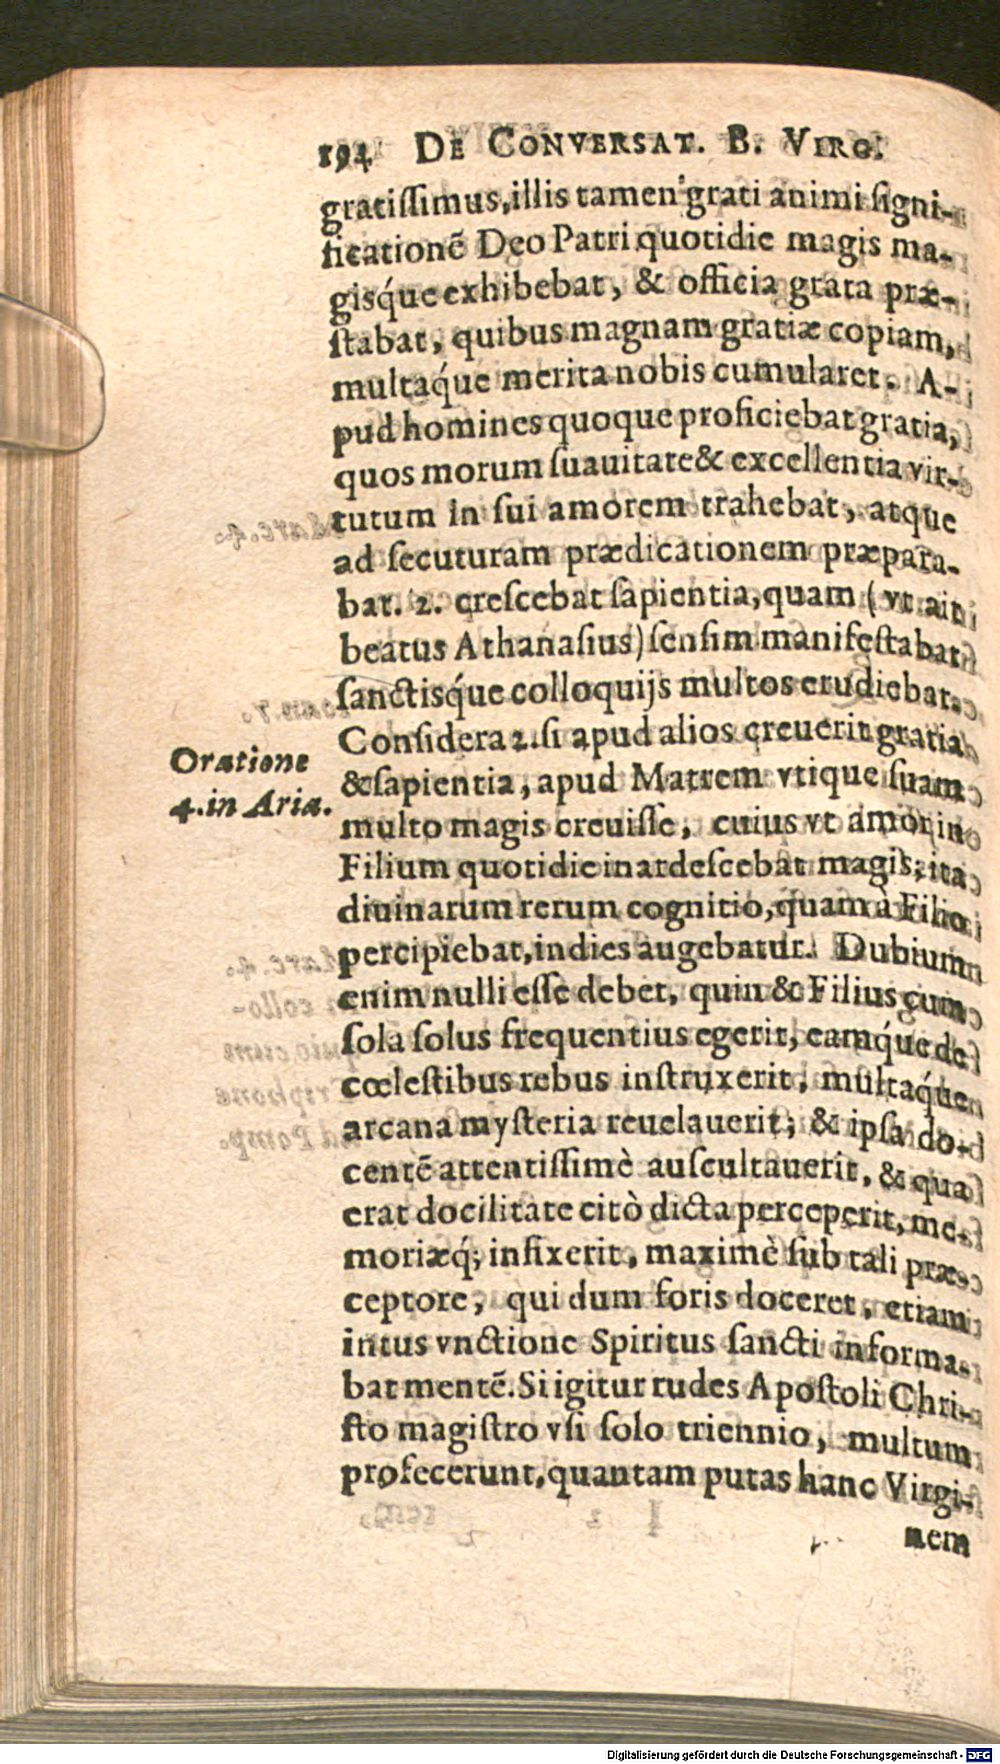 194 DE CONVERSAT. B. VIRG.
gratiſſimus, illis tamen grati animi ſigni-
ficationẽ Deo Patri quotidie magis ma-
giſq́ue exhibebat, & officia grata præ-
ſtabat, quibus magnam gratiæ copiam,
multaq́ue merita nobis cumularet. A-
pud homines quoque proficiebat gratia,
quos morum ſuauitate & excellentia vir-
tutum in ſui amorem trahebat, atque
ad ſecuturam prædicationem præpara-
bat. 2. creſcebat ſapientia, quam (vt ait
beatus Athanaſius) ſenſim manifeſtabat
ſanctiſq́ue colloquijs multos erudiebat.
Conſidera 2. ſi apud alios creuerit gratia
& ſapientia, apud Matrem vtique ſuam
Oratione
4. in Aria.
multo magis creuiſſe, cuius vt amor in
Filium quotidie inardeſcebat magis; ita
diuinarum rerum cognitio, quam à Filio
percipiebat, indies augebatur. Dubium
enim nulli eſſe debet, quin & Filius cum
ſola ſolus frequentius egerit, eamq́ue de
cœleſtibus rebus inſtruxerit, multaq́ue
arcana myſteria reuelauerit; & ipſa do-
centẽ attentiſſimè auſcultauerit, & qua
erat docilitate citò dicta perceperit, me-
moriæq́; infixerit, maximè ſub tali præ-
ceptore, qui dum foris doceret, etiam
intus vnctione Spiritus ſancti informa-
bat mentẽ. Si igitur rudes Apoſtoli Chri-
ſto magiſtro vſi ſolo triennio, multum
profecerunt, quantam putas hanc Virgi-
nem
Digitalisierung gefördert durch die Deutsche Forschungsgemeinschaft - DFG